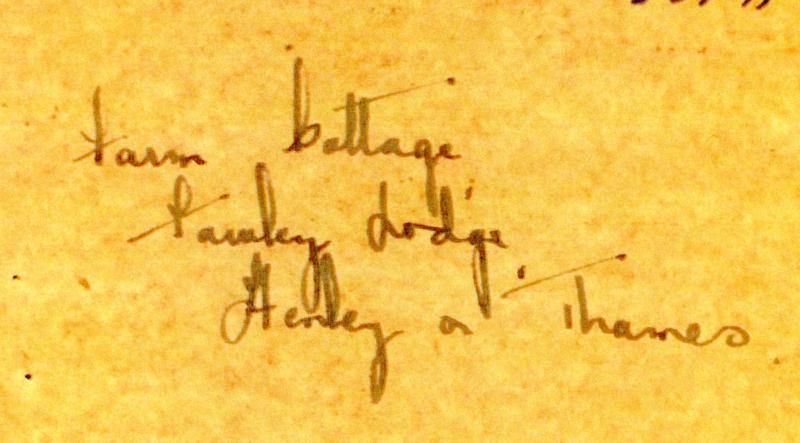 Farm Cottage,
Fawley Lodge,
Henley on Thames